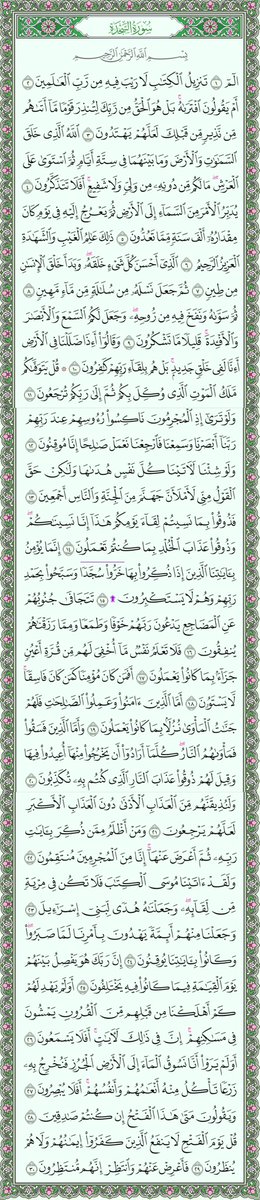 سُورَةُ السَّجْدَةِ
بِسْمِ اللَّهِ الرَّحْمَٰنِ الرَّحِيمِ
الٓمٓ ١ تَنزِيلُ الْكِتَابِ لَا رَيْبَ فِيهِ مِن رَّبِّ الْعَالَمِينَ ٢
أَمْ يَقُولُونَ افْتَرَاهُ بَلْ هُوَ الْحَقُّ مِن رَّبِّكَ لِتُنذِرَ قَوْمًا مَّا أَتَاهُم
مِّن نَّذِيرٍ مِّن قَبْلِكَ لَعَلَّهُمْ يَهْتَدُونَ ٣ اللَّهُ الَّذِي خَلَقَ
السَّمَاوَاتِ وَالْأَرْضَ وَمَا بَيْنَهُمَا فِي سِتَّةِ أَيَّامٍ ثُمَّ اسْتَوَىٰ عَلَى
الْعَرْشِ مَا لَكُم مِّن دُونِهِ مِن وَلِيٍّ وَلَا شَفِيعٍ أَفَلَا تَتَذَكَّرُونَ ٤
يُدَبِّرُ الْأَمْرَ مِنَ السَّمَاءِ إِلَى الْأَرْضِ ثُمَّ يَعْرُجُ إِلَيْهِ فِي يَوْمٍ كَانَ
مِقْدَارُهُ أَلْفَ سَنَةٍ مِّمَّا تَعُدُّونَ ٥ ذَٰلِكَ عَالِمُ الْغَيْبِ وَالشَّهَادَةِ
الْعَزِيزُ الرَّحِيمُ ٦ الَّذِي أَحْسَنَ كُلَّ شَيْءٍ خَلَقَهُ وَبَدَأَ خَلْقَ الْإِنسَانِ
مِن طِينٍ ٧ ثُمَّ جَعَلَ نَسْلَهُ مِن سُلَالَةٍ مِّن مَّاءٍ مَّهِينٍ ٨
ثُمَّ سَوَّاهُ وَنَفَخَ فِيهِ مِن رُّوحِهِ وَجَعَلَ لَكُمُ السَّمْعَ وَالْأَبْصَارَ
وَالْأَفْئِدَةَ قَلِيلًا مَّا تَشْكُرُونَ ٩ وَقَالُوا أَإِذَا ضَلَلْنَا فِي الْأَرْضِ
أَإِنَّا لَفِي خَلْقٍ جَدِيدٍ بَلْ هُم بِلِقَاءِ رَبِّهِمْ كَافِرُونَ ١٠ قُلْ يَتَوَفَّاكُم
مَّلَكُ الْمَوْتِ الَّذِي وُكِّلَ بِكُمْ ثُمَّ إِلَىٰ رَبِّكُمْ تُرْجَعُونَ ١١
وَلَوْ تَرَىٰ إِذِ الْمُجْرِمُونَ نَاكِسُو رُءُوسِهِمْ عِندَ رَبِّهِمْ
رَبَّنَا أَبْصَرْنَا وَسَمِعْنَا فَارْجِعْنَا نَعْمَلْ صَالِحًا إِنَّا مُوقِنُونَ ١٢
وَلَوْ شِئْنَا لَآتَيْنَا كُلَّ نَفْسٍ هُدَاهَا وَلَٰكِنْ حَقَّ
الْقَوْلُ مِنِّي لَأَمْلَأَنَّ جَهَنَّمَ مِنَ الْجِنَّةِ وَالنَّاسِ أَجْمَعِينَ ١٣
فَذُوقُوا بِمَا نَسِيتُمْ لِقَاءَ يَوْمِكُمْ هَٰذَا إِنَّا نَسِينَاكُمْ
وَذُوقُوا عَذَابَ الْخُلْدِ بِمَا كُنتُمْ تَعْمَلُونَ ١٤ إِنَّمَا يُؤْمِنُ
بِآيَاتِنَا الَّذِينَ إِذَا ذُكِّرُوا بِهَا خَرُّوا سُجَّدًا وَسَبَّحُوا بِحَمْدِ
رَبِّهِمْ وَهُمْ لَا يَسْتَكْبِرُونَ ۩ ١٥ تَتَجَافَىٰ جُنُوبُهُمْ
عَنِ الْمَضَاجِعِ يَدْعُونَ رَبَّهُمْ خَوْفًا وَطَمَعًا وَمِمَّا رَزَقْنَاهُمْ
يُنفِقُونَ ١٦ فَلَا تَعْلَمُ نَفْسٌ مَّا أُخْفِيَ لَهُم مِّن قُرَّةِ أَعْيُنٍ
جَزَاءً بِمَا كَانُوا يَعْمَلُونَ ١٧ أَفَمَن كَانَ مُؤْمِنًا كَمَن كَانَ فَاسِقًا
لَّا يَسْتَوُونَ ١٨ أَمَّا الَّذِينَ آمَنُوا وَعَمِلُوا الصَّالِحَاتِ فَلَهُمْ
جَنَّاتُ الْمَأْوَىٰ نُزُلًا بِمَا كَانُوا يَعْمَلُونَ ١٩ وَأَمَّا الَّذِينَ فَسَقُوا
فَمَأْوَاهُمُ النَّارُ كُلَّمَا أَرَادُوا أَن يَخْرُجُوا مِنْهَا أُعِيدُوا فِيهَا
وَقِيلَ لَهُمْ ذُوقُوا عَذَابَ النَّارِ الَّذِي كُنتُم بِهِ تُكَذِّبُونَ ٢٠
وَلَنُذِيقَنَّهُم مِّنَ الْعَذَابِ الْأَدْنَىٰ دُونَ الْعَذَابِ الْأَكْبَرِ
لَعَلَّهُمْ يَرْجِعُونَ ٢١ وَمَنْ أَظْلَمُ مِمَّن ذُكِّرَ بِآيَاتِ
رَبِّهِ ثُمَّ أَعْرَضَ عَنْهَا إِنَّا مِنَ الْمُجْرِمِينَ مُنتَقِمُونَ ٢٢
وَلَقَدْ آتَيْنَا مُوسَى الْكِتَابَ فَلَا تَكُن فِي مِرْيَةٍ
مِّن لِّقَائِهِ وَجَعَلْنَاهُ هُدًى لِّبَنِي إِسْرَائِيلَ ٢٣
وَجَعَلْنَا مِنْهُمْ أَئِمَّةً يَهْدُونَ بِأَمْرِنَا لَمَّا صَبَرُوا
وَكَانُوا بِآيَاتِنَا يُوقِنُونَ ٢٤ إِنَّ رَبَّكَ هُوَ يَفْصِلُ بَيْنَهُمْ
يَوْمَ الْقِيَامَةِ فِيمَا كَانُوا فِيهِ يَخْتَلِفُونَ ٢٥ أَوَلَمْ يَهْدِ لَهُمْ
كَمْ أَهْلَكْنَا مِن قَبْلِهِم مِّنَ الْقُرُونِ يَمْشُونَ
فِي مَسَاكِنِهِمْ إِنَّ فِي ذَٰلِكَ لَآيَاتٍ أَفَلَا يَسْمَعُونَ ٢٦
أَوَلَمْ يَرَوْا أَنَّا نَسُوقُ الْمَاءَ إِلَى الْأَرْضِ الْجُرُزِ فَنُخْرِجُ بِهِ
زَرْعًا تَأْكُلُ مِنْهُ أَنْعَامُهُمْ وَأَنفُسُهُمْ أَفَلَا يُبْصِرُونَ ٢٧
وَيَقُولُونَ مَتَىٰ هَٰذَا الْفَتْحُ إِن كُنتُمْ صَادِقِينَ ٢٨
قُلْ يَوْمَ الْفَتْحِ لَا يَنفَعُ الَّذِينَ كَفَرُوا إِيمَانُهُمْ وَلَا هُمْ
يُنظَرُونَ ٢٩ فَأَعْرِضْ عَنْهُمْ وَانتَظِرْ إِنَّهُم مُّنتَظِرُونَ ٣٠